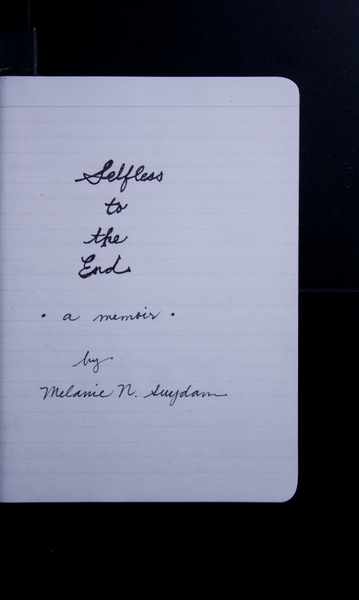 Selfless
to
the
End
• a memoir •
by
Melanie N. Suydam